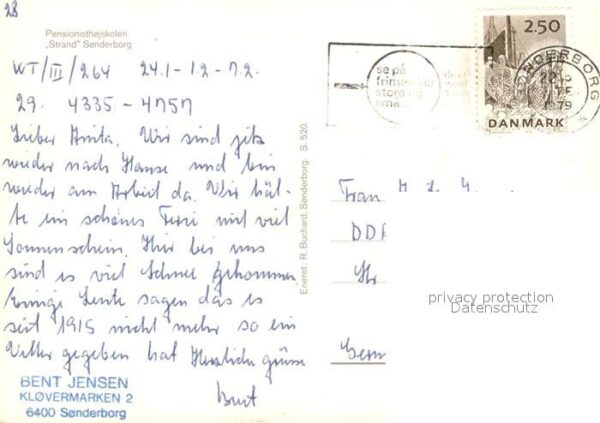 28
Pensionisthøjskolen
„Strand" Sønderborg
WT/III/264 24.1-1.2-7.2.
29. 4335-4757
Lieber Anita. Wir sind jetz
wieder nach Hause und bin
wieder am Arbeit da. Wir hät-
te ein schönes Ferie mit viel
Sonnenschein. Hir bei uns
sind es viel Schnee gekommen
Einige Leute sagen das es
seit 1915 nicht mehr so ein
Vetter gegeben hat Herzliche grüsse
Bent
BENT JENSEN
KLØVERMARKEN 2
6400 Sønderborg
Eneret: R. Buchard, Sønderborg. S. 520.
se på
frimærker
store og
små
2.50
DANMARK
SØNDERBORG
1979
Frau
DDR
privacy protection
Datenschutz